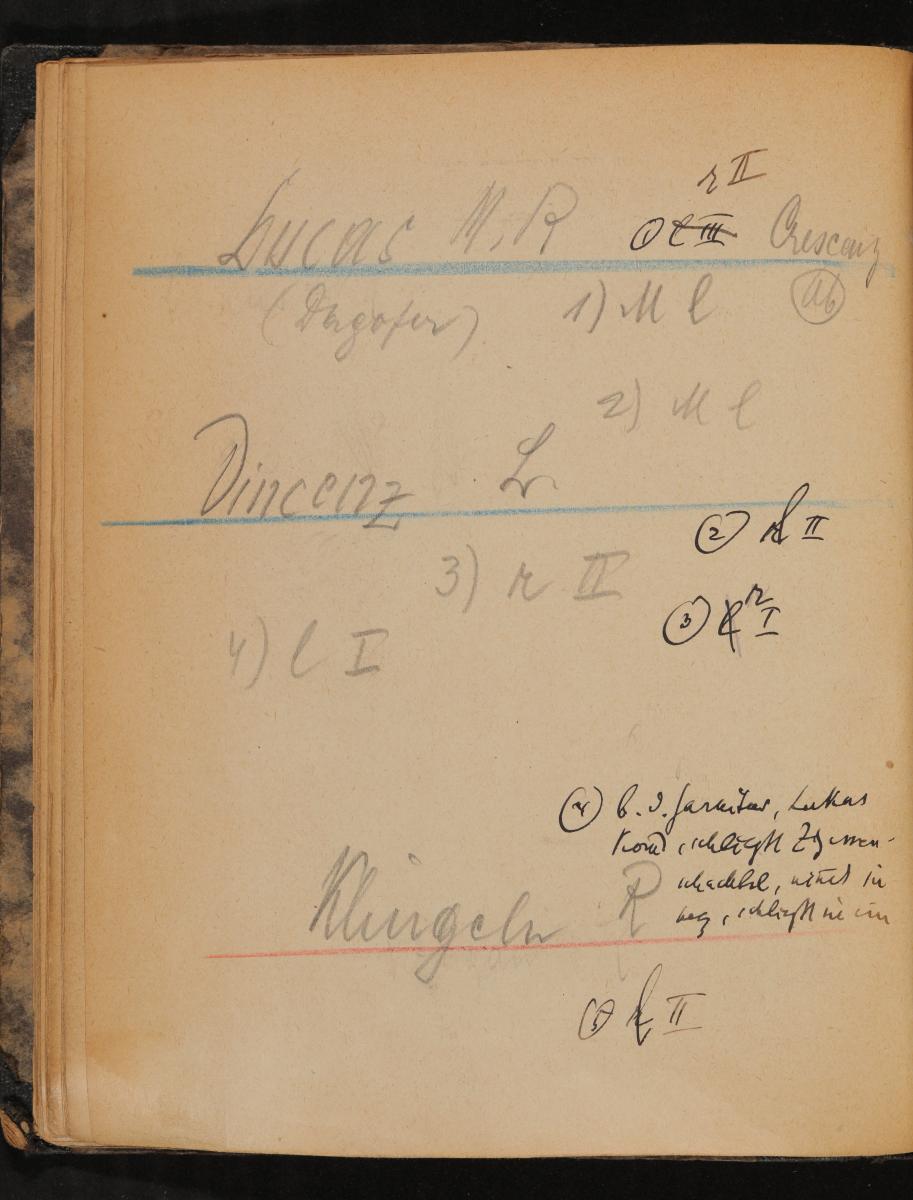 r II
Lucas M. R ① l III Crescenz
(Dagofer) 1) M l (Ab)
2) M l
Vincenz L.
② II
3) r II
③ l r I
4) l I
④ b. d. Garnitur, Lukas
kommt, schließt Zigarren-
schachtel, nimmt sie
weg, schließt sie ein
Klingeln R
⑤ II